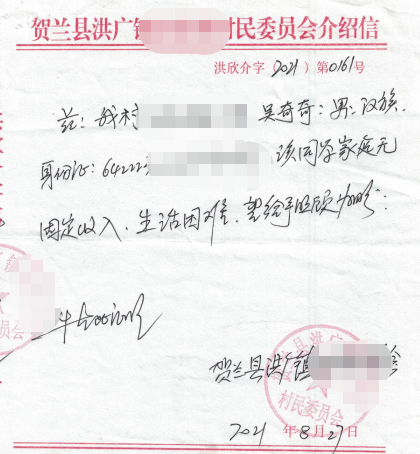 贺兰县洪广镇村民委员会介绍信
洪欣介字（2021）第0161号
兹：我村 吴奇奇：男：汉族.
身份证：64222 该同学家庭无
固定收入、生活困难、望给予照顾为盼：
贺兰县洪广镇
村民委员会
2021 年 8 月 27 日